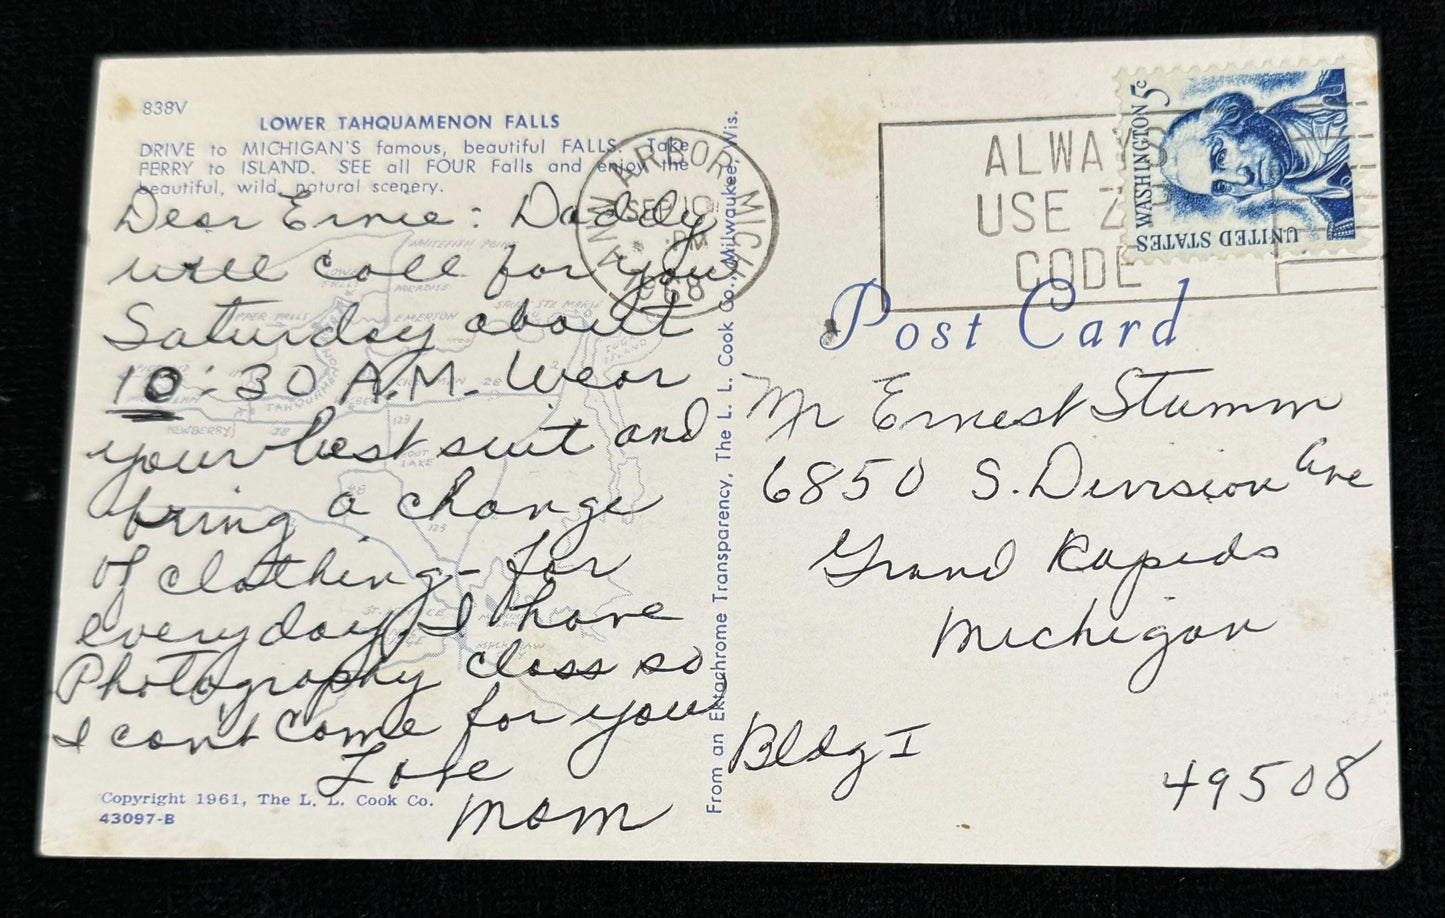 838V
LOWER TAHQUAMENON FALLS
DRIVE to MICHIGAN'S famous, beautiful FALLS. Take
FERRY to ISLAND. SEE all FOUR Falls and enjoy the
beautiful, wild, natural scenery.
Dear Ernie: Daddy
will call for you
Saturday about
10:30 A.M. Wear
your best suit and
bring a change
of clothing - for
everyday. I have
Photography class so
I can't come for you
Love
Mom
WHITEFISH POINT
PARADISE
EMERSON
UPPER FALLS
NEWBERRY
28
28
2
123
123
48
Copyright 1961, The L. L. Cook Co.
43097-B
From an Ektachrome Transparency, The L. L. Cook Co., Milwaukee, Wis.
ANN ARBOR MICH
SEP 10
PM
1968
ALWAYS
USE Z
CODE
WASHINGTON 5c
UNITED STATES
Post Card
Mr Ernest Stumm
6850 S. Division Ave
Grand Rapids
Michigan
Bldg I
49508